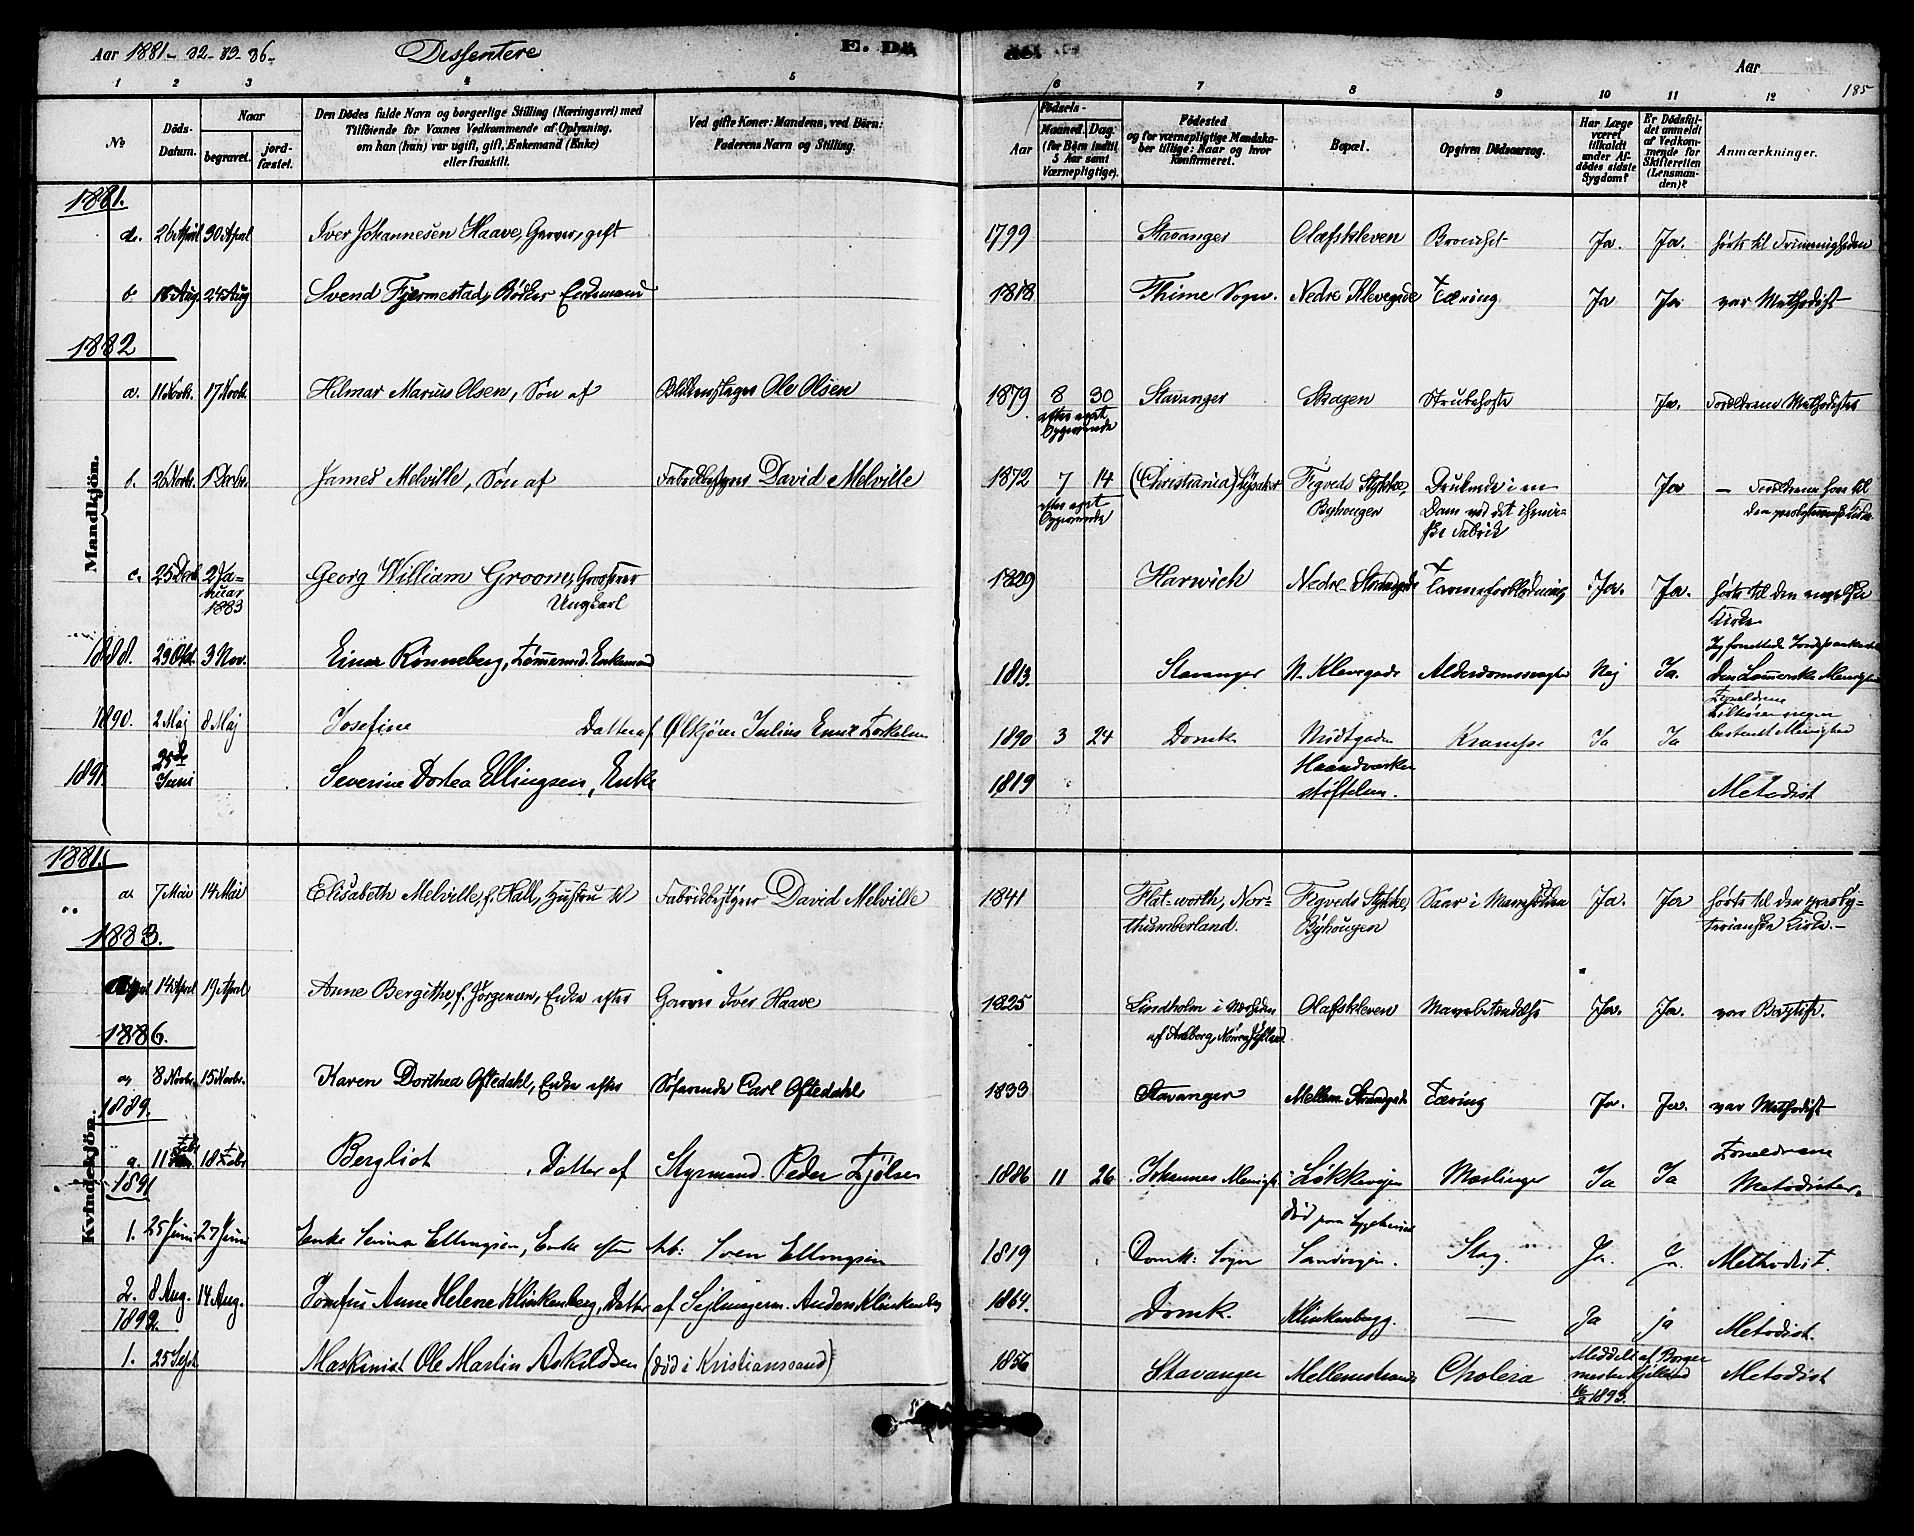 Aar 1881- 82- 83- 86-
Dissentere
E. Dö
de.
Aar
185
1 2 3 4 5 6 7 8 9 10 11 12
No
Döds-Datum.
Naar
begravet.
jord-fæstet.
Den Dödes fulde Navn og borgerlige Stilling (Næringsvei) med
Tilföiende for Voxnes Vedkommende af Oplysning,
om han (hun) var ugift, gift, Enkemand (Enke)
eller fraskilt.
Ved gifte Koner: Mandens, ved Börn:
Faderens Navn og Stilling.
Födsels-
Aar
Maaned. Dag.
(for Börn indtil
5 Aar samt
Værnepligtige).
Födested
og for værnepligtige Mandska-
ber tillige: Naar og hvor
Konfirmeret.
Bopæl.
Opgiven Dödsaarsag.
Har Læge
været
tilkaldt
under Af-
dödes sidste
Sygdom?
Er Dödsfal-
det anmeldt
af Vedkom-
mende for
Skifteretten
(Lensman-
den)?
Anmærkninger.
Mandkjön.
1881.
a. 26 April 30 April Iver Johannesen Haave, Garver, gift 1799 Stavanger Olafskleven Ja. Ja. hørte til Frimenigheden
b 18 Aug 24 Aug Svend Fjermestad, Bødker Enkemand 1818 Thime Sogn. Nedre Klevegade Tæring Ja Ja var Methodist
1882
a. 11 Novb. 17 Novb. Hilmar Marius Olsen, Søn af Blikkenslager Ole Olsen 1879 8 30 Stavanger Skagen Strubehoste Ja. Forældrene Methodister
efter eget
Opgivende
b. 26 Novb. 1 Decbr. James Melville, Søn af Fabrikbestyrer David Melville 1872 7 14 (Christiania) Lysaker Figveds Stykke, Druknede i en Ja – Forældrene hørte til
efter eget
Opgivende
Byhougen Dam ved det chemi-
ske Fabrik
den presbyterianske Kirke
c. 25 Decb 2 Ja-
nuar
1883
Georg William Groom, Grosserer
Ungkarl
1829 Harwich Nedre Strandgade Tarmeforblødning Ja. Ja. hørte til den engelske
Kirke
1888. 29 Okt. 3 Nov. Einar Rönneberg, Tømmermd. Enkemand 1813. Stavanger N. Klevegade Alderdomssvaghed Nej Ja. Den Lammerske Menighed
1890. 2 Maj 8 Maj Josefine Datter af Ølkjører Julius Emil Torkelsen 1890 3 24 Domk Midtgaden Krampe Ja Ja
Forældrene
1891. 25de
Juni
Severine Dortea Ellingsen, Enke 1819 Haandværker
stiftelsen. Metodist
Kvindekjön.
1881.
a 7 Mai 14 Mai Elisabeth Melville, f. Hall, Hustru til Fabrikbestyrer David Melville 1841 Flat-worth, Nor-
thumberland.
Figveds Stykke,
Byhougen
Saar i Mavesækken Ja. Ja hørte til den presby-
terianske Kirke.-
1883.
14 April 19 April Anne Bergithe, f. Jørgensen, Enke efter Garver Iver Haave 1825 Lindholm i Nærheden
af Aalborg, Nörre Jylland
Olafskleven Mavebetændelse Ja. Ja. var Baptist.
1886.
a 8 Novbr. 15 Novbr. Karen Dorthea Oftedahl, Enke efter Søfarende Carl Oftedahl 1833 Stavanger Mellem Strandgade Tæring Ja. Ja. var Methodist
1889.
a. 11 Febr 18 Febr Bergliot , Datter af Styrmand Peder Fjølsen 1886 11 26 Johannes Menigh. Løkkevejen Mæslinger Ja Ja Forældrene
Metodister.
1891
1. 25 Juni 27 Juni Enke Serina Ellingsen, Enke efter Arb: Sven Ellingsen 1819 Domk: Sogn Død paa Sygehuset
Sandvigen. Slag. Ja Ja Methodist.
2. 8 Aug. 14 Aug. Jomfru Anne Helene Klinkenberg, Datter af Sejlmagerm. Anders Klinkenberg 1864. Domk. Klinkenbergg. — Ja ja Metodist.
1892.
1. 25 Sept Maskinist Ole Martin Askildsen (død i Kristianssand) 1856 Stavanger Mellemstrandg Cholera Meddelt af Borger
mester Kjelland
16/2 1893. Metodist